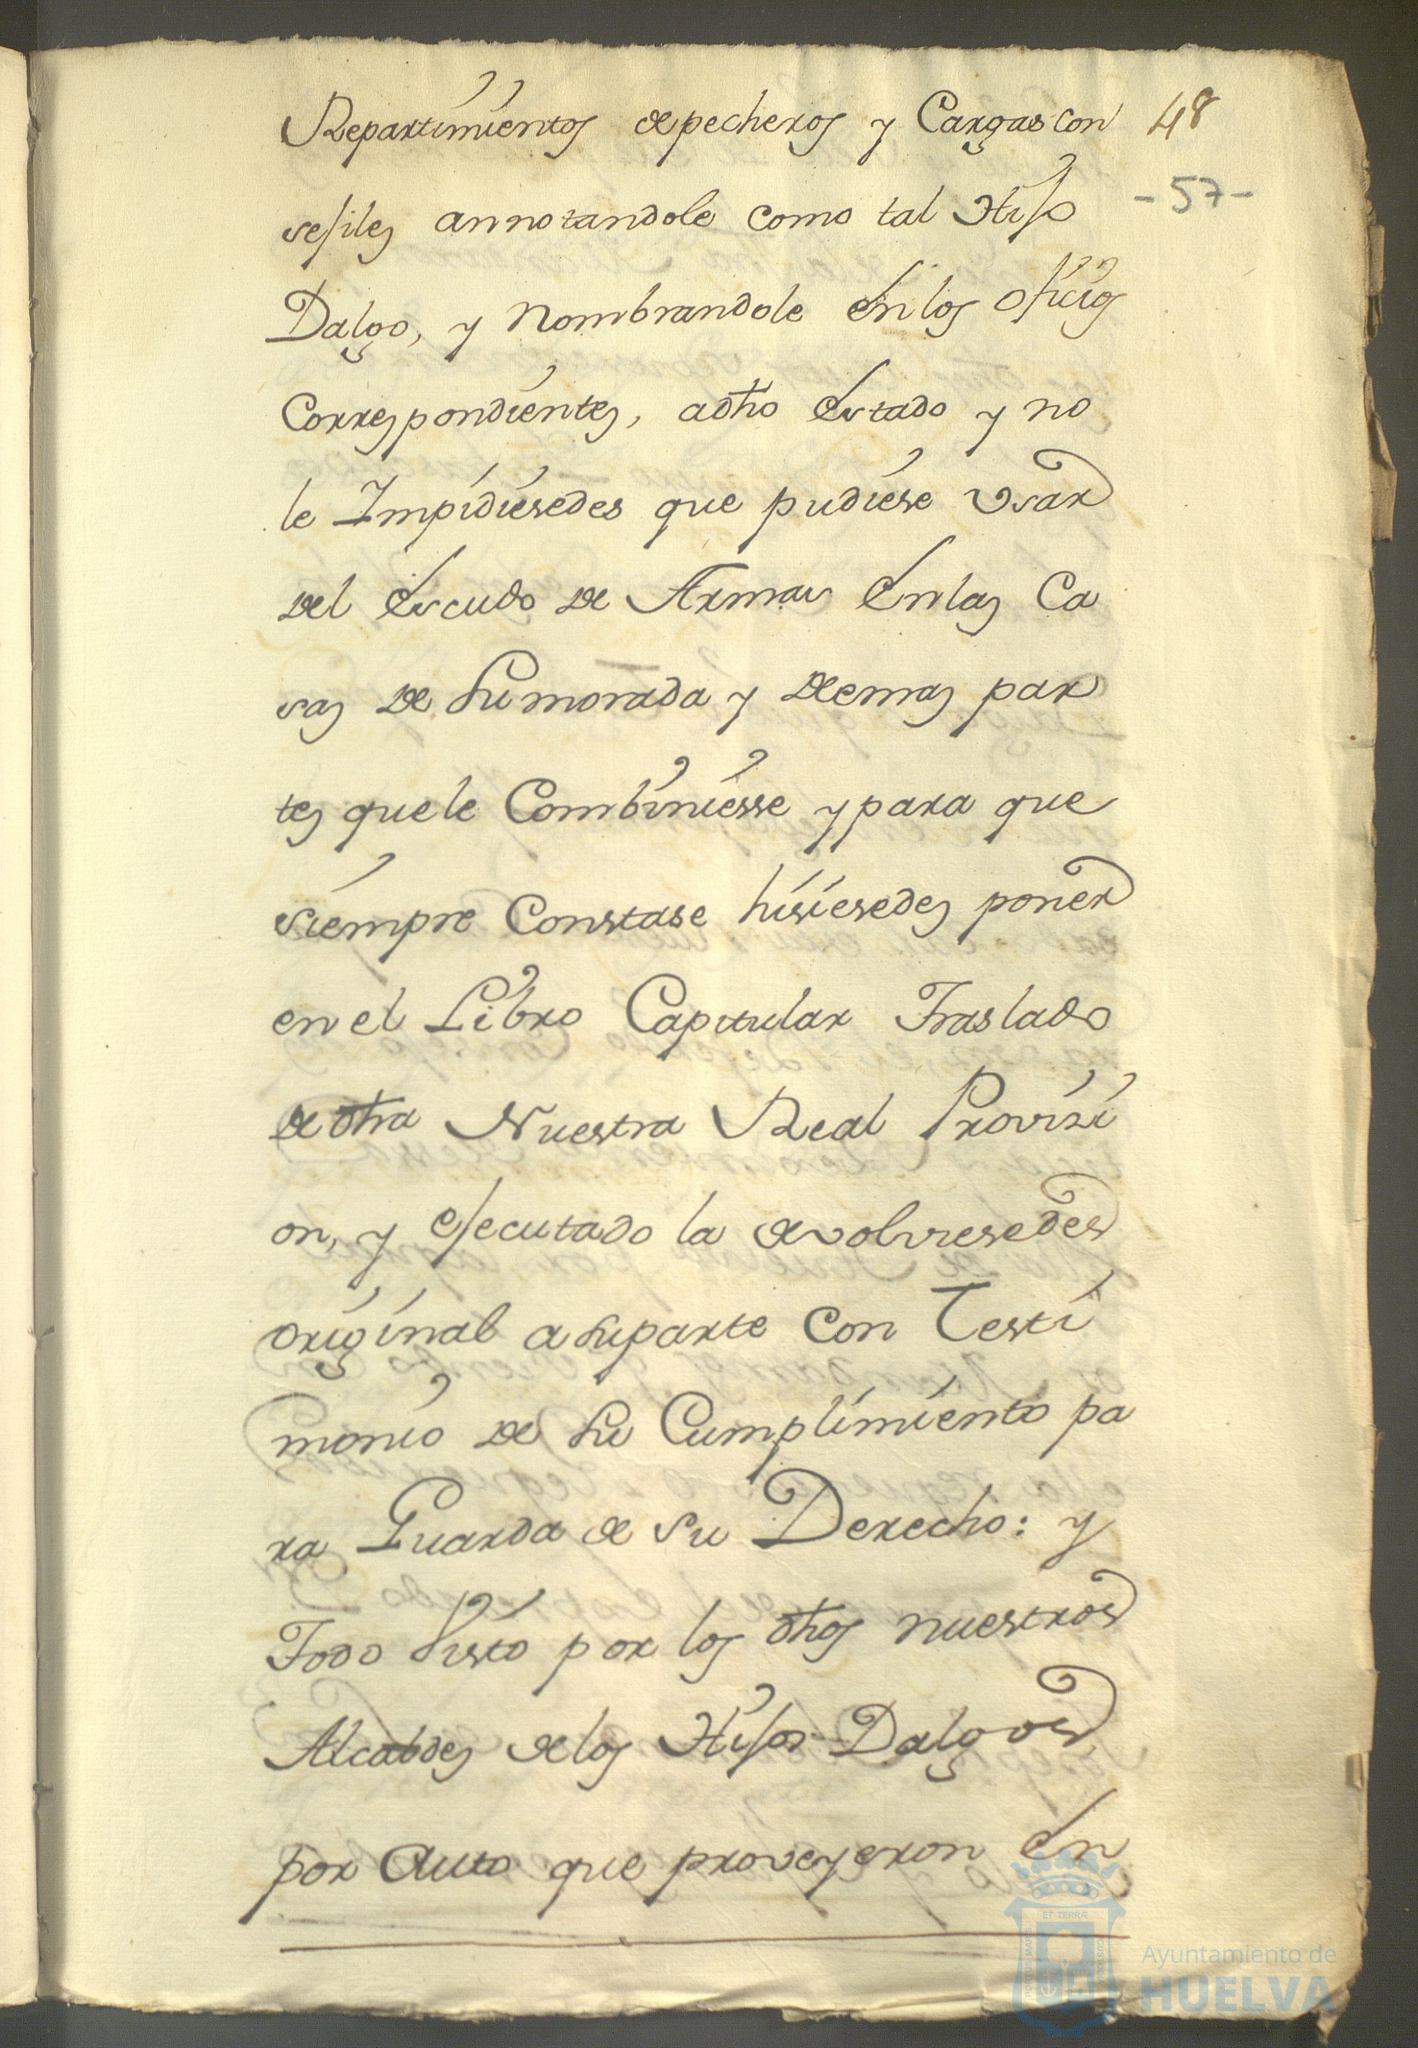 Repartimientos depecheros y Cargas con
48
sesiles annotandole como tal Hijo
-57-
Dalgo, y Nombrandole en los oficios
Correspondientes, adho estado y no
le Impidiesedes que pudiese Vsar
del escudo de Armas en las Ca
sas de Su morada y demas par
tes que le Combiniesse y para que
siempre Constase hisiesedes poner
en el Libro Capitular Traslado
de dha Nuestra Real Provizi
on, y ejecutado la devolviesedes
original a Suparte Con Testi
monio de Su Cumplimiento pa
ra Guarda de su Derecho: y
Todo Visto por los dhos nuestros
Alcaldes delos Hijos Dalgos
por Auto que proveyeron en
ET TERRÆ
Ayuntamiento de
HUELVA